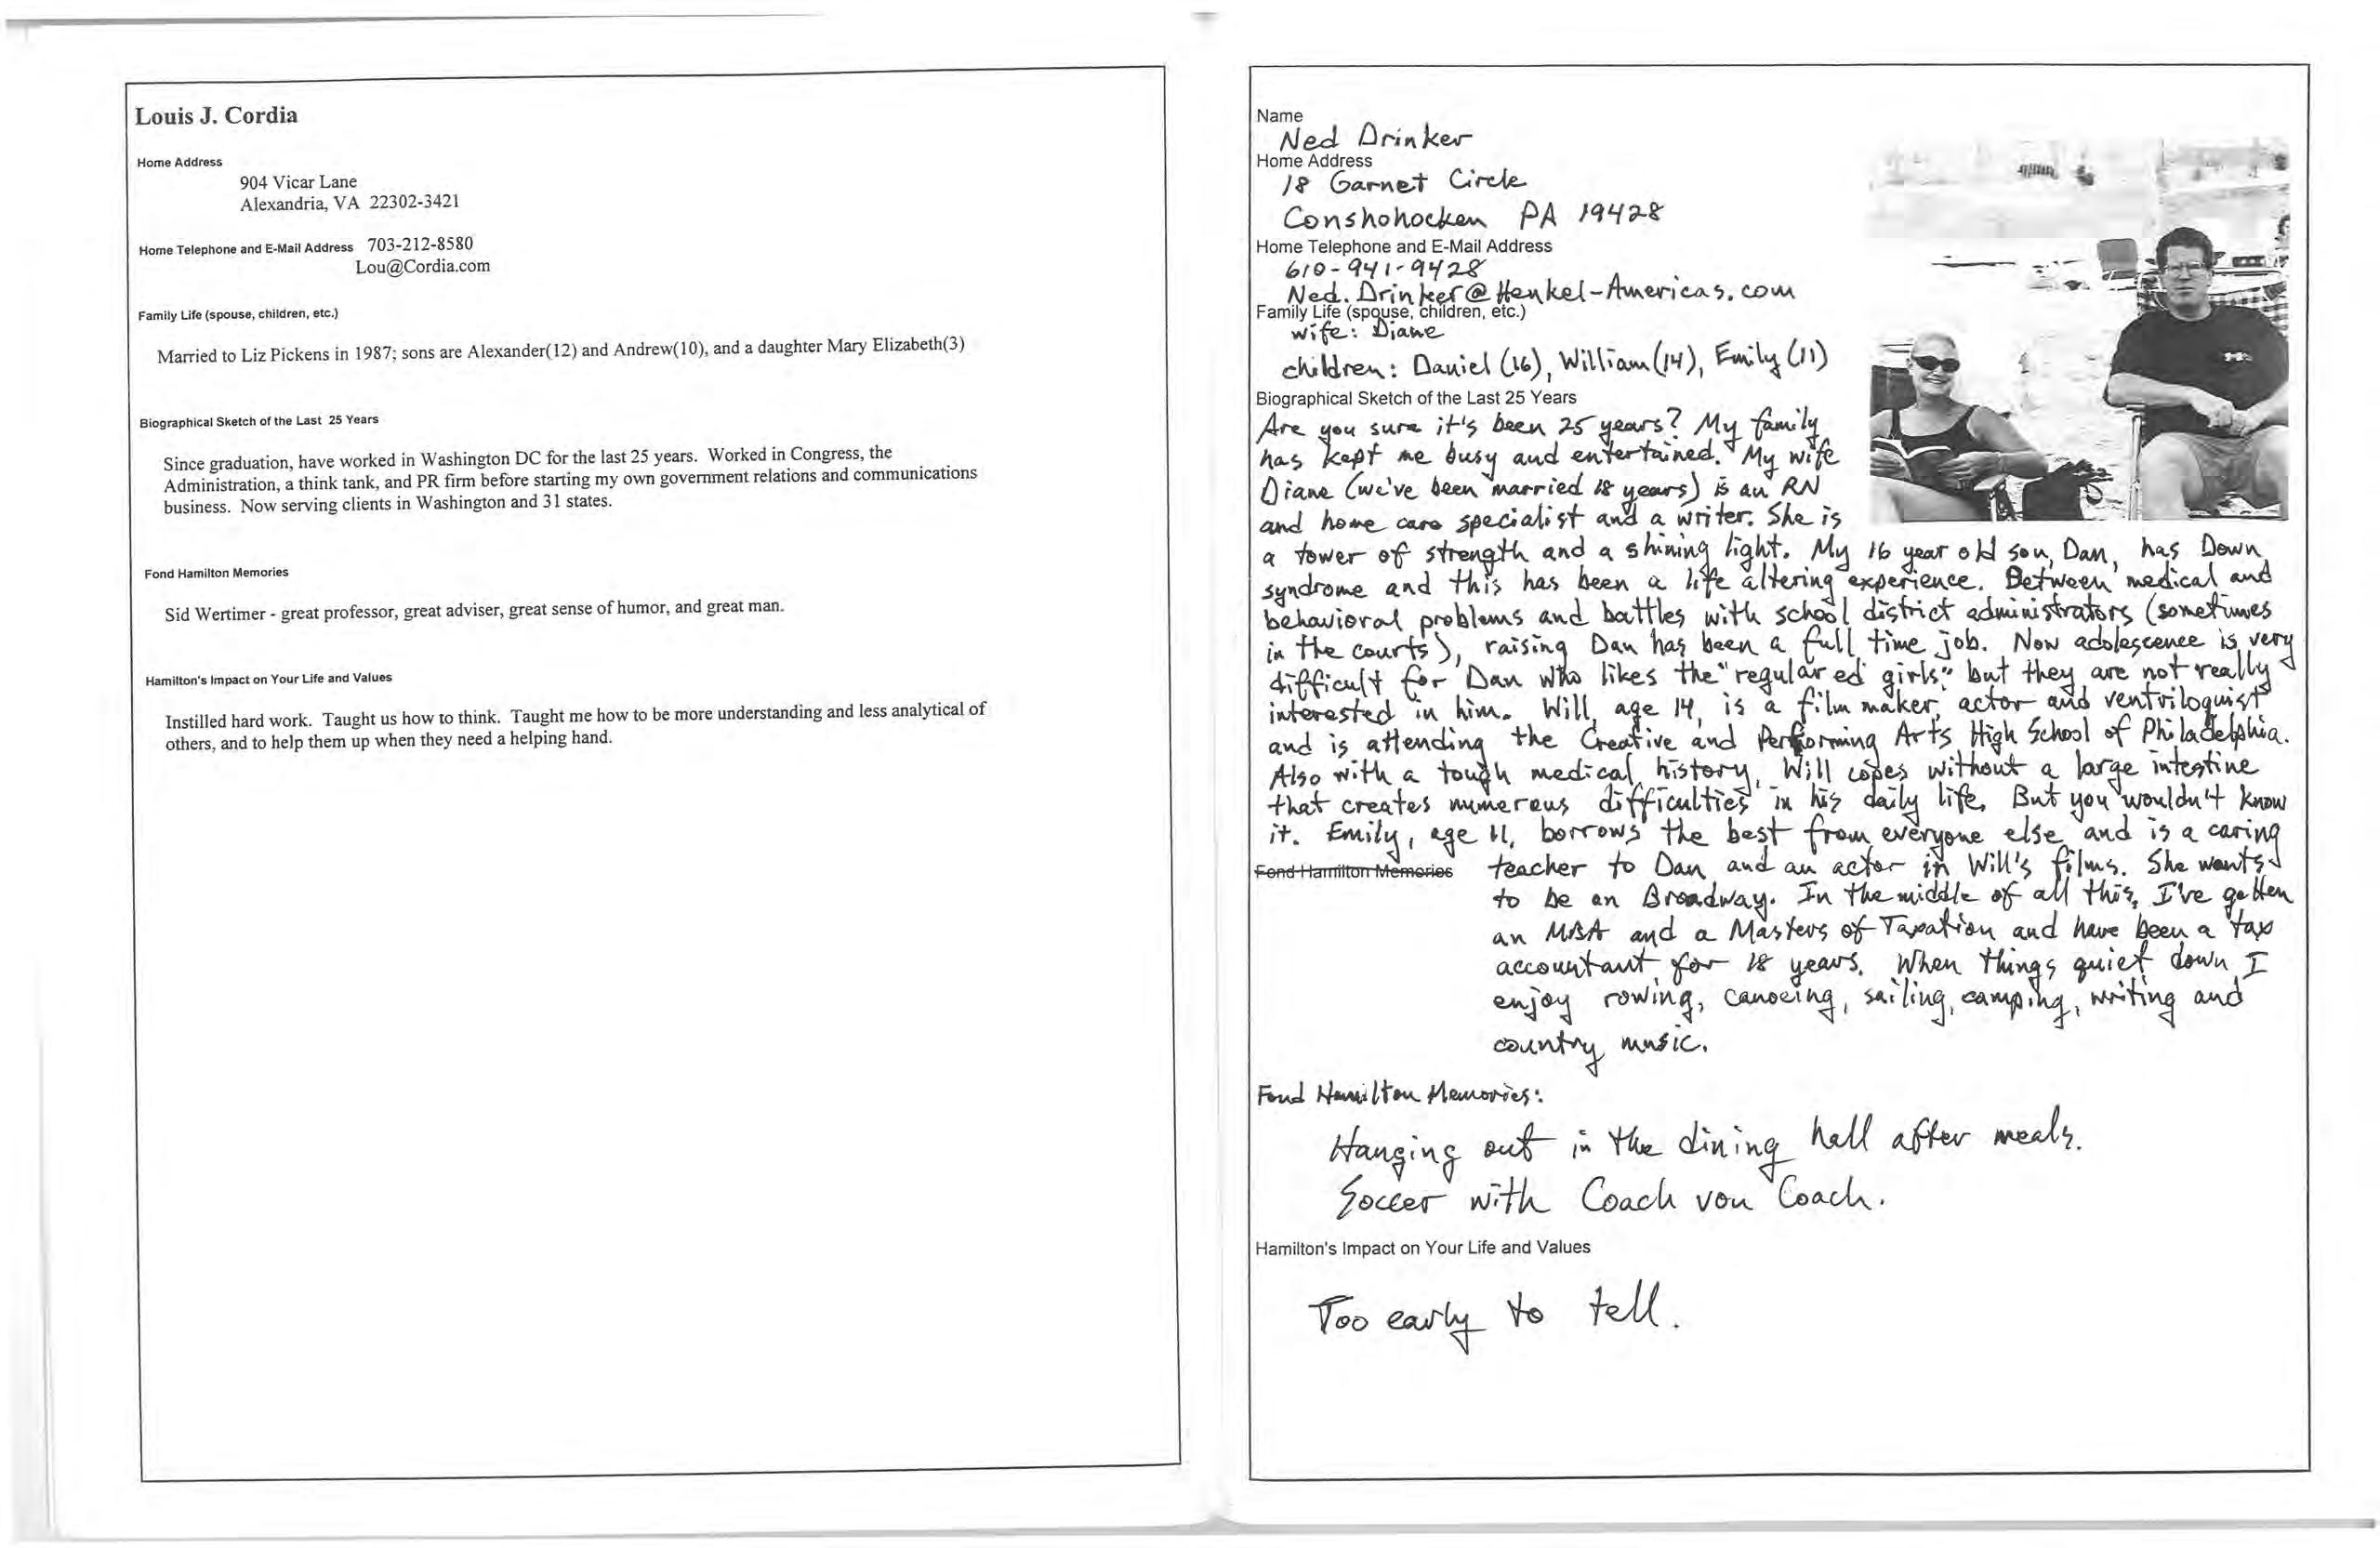 Louis J. Cordia
Home Address
904 Vicar Lane
Alexandria, VA 22302-3421
Home Telephone and E-Mail Address 703-212-8580
Lou@Cordia.com
Family Life (spouse, children, etc.)
Married to Liz Pickens in 1987; sons are Alexander(12) and Andrew(10), and a daughter Mary Elizabeth(3)
Biographical Sketch of the Last 25 Years
Since graduation, have worked in Washington DC for the last 25 years. Worked in Congress, the
Administration, a think tank, and PR firm before starting my own government relations and communications
business. Now serving clients in Washington and 31 states.
Fond Hamilton Memories
Sid Wertimer - great professor, great adviser, great sense of humor, and great man.
Hamilton's Impact on Your Life and Values
Instilled hard work. Taught us how to think. Taught me how to be more understanding and less analytical of
others, and to help them up when they need a helping hand.
Name
Ned Drinker
Home Address
18 Garnet Circle
Conshohocken PA 19428
Home Telephone and E-Mail Address
610-941-9428
Ned.Drinker@Henkel-Americas.com
Family Life (spouse, children, etc.)
wife: Diane
children: Daniel (16), William (14), Emily (11)
Biographical Sketch of the Last 25 Years
Are you sure it's been 25 years? My family
has kept me busy and entertained. My wife
Diane (we've been married 18 years) is an RN
and home care specialist and a writer. She is
a tower of strength and a shining light. My 16 year old son, Dan, has Down
syndrome and this has been a life altering experience. Between medical and
behavioral problems and battles with school district administrators (sometimes
in the courts), raising Dan has been a full time job. Now adolescence is very
difficult for Dan who likes the "regular ed girls" but they are not really
interested in him. Will, age 14, is a film maker, actor and ventriloquist
and is attending the Creative and Performing Arts High School of Philadelphia.
Also with a tough medical history, Will copes without a large intestine
that creates numerous difficulties in his daily life. But you wouldn't know
it. Emily, age 11, borrows the best from everyone else and is a caring
Fond Hamilton Memories teacher to Dan and an actor in Will's films. She wants
to be on Broadway. In the middle of all this, I've gotten
an MBA and a Masters of Taxation and have been a tax
accountant for 18 years. When things quiet down I
enjoy rowing, canoeing, sailing, camping, writing and
country music.
Fond Hamilton Memories:
Hanging out in the dining hall after meals.
Soccer with Coach von Coach.
Hamilton's Impact on Your Life and Values
Too early to tell.